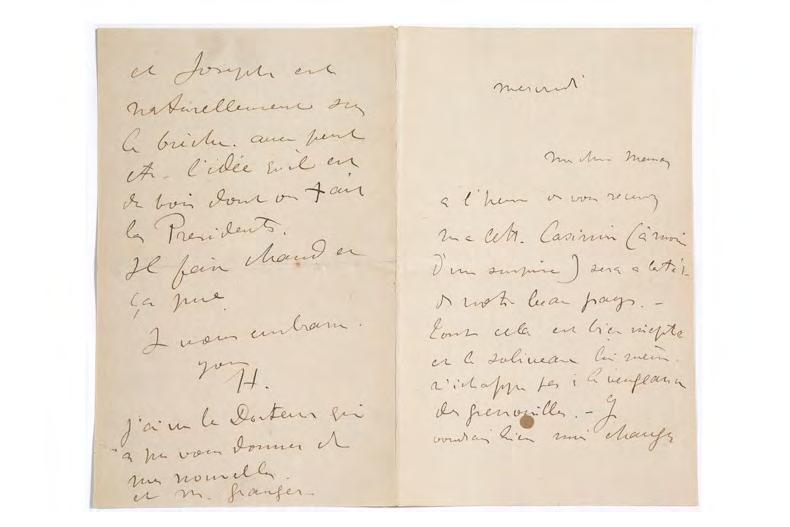 mercredi
ma chère maman
a l'heure ou vous recevrez
ma lettre. Casimir (à moins
d'une surprise) sera a la tête
de notre beau pays. –
Tout cela est bien inepte
et le soliveau lui même
n'échappe pas à la vengeance
des grenouilles. – Je
voudrais bien changer
et Joseph est
naturellement sur
la brèche. avec peut
etre l'idée qu'il est
du bois dont on fait
les Presidents.
Il fait chaud et
ça pue.
Je vous embrasse.
your
H.
j'ai vu le Docteur qui
a pu vous donner de
mes nouvelles.
et M. Granger.